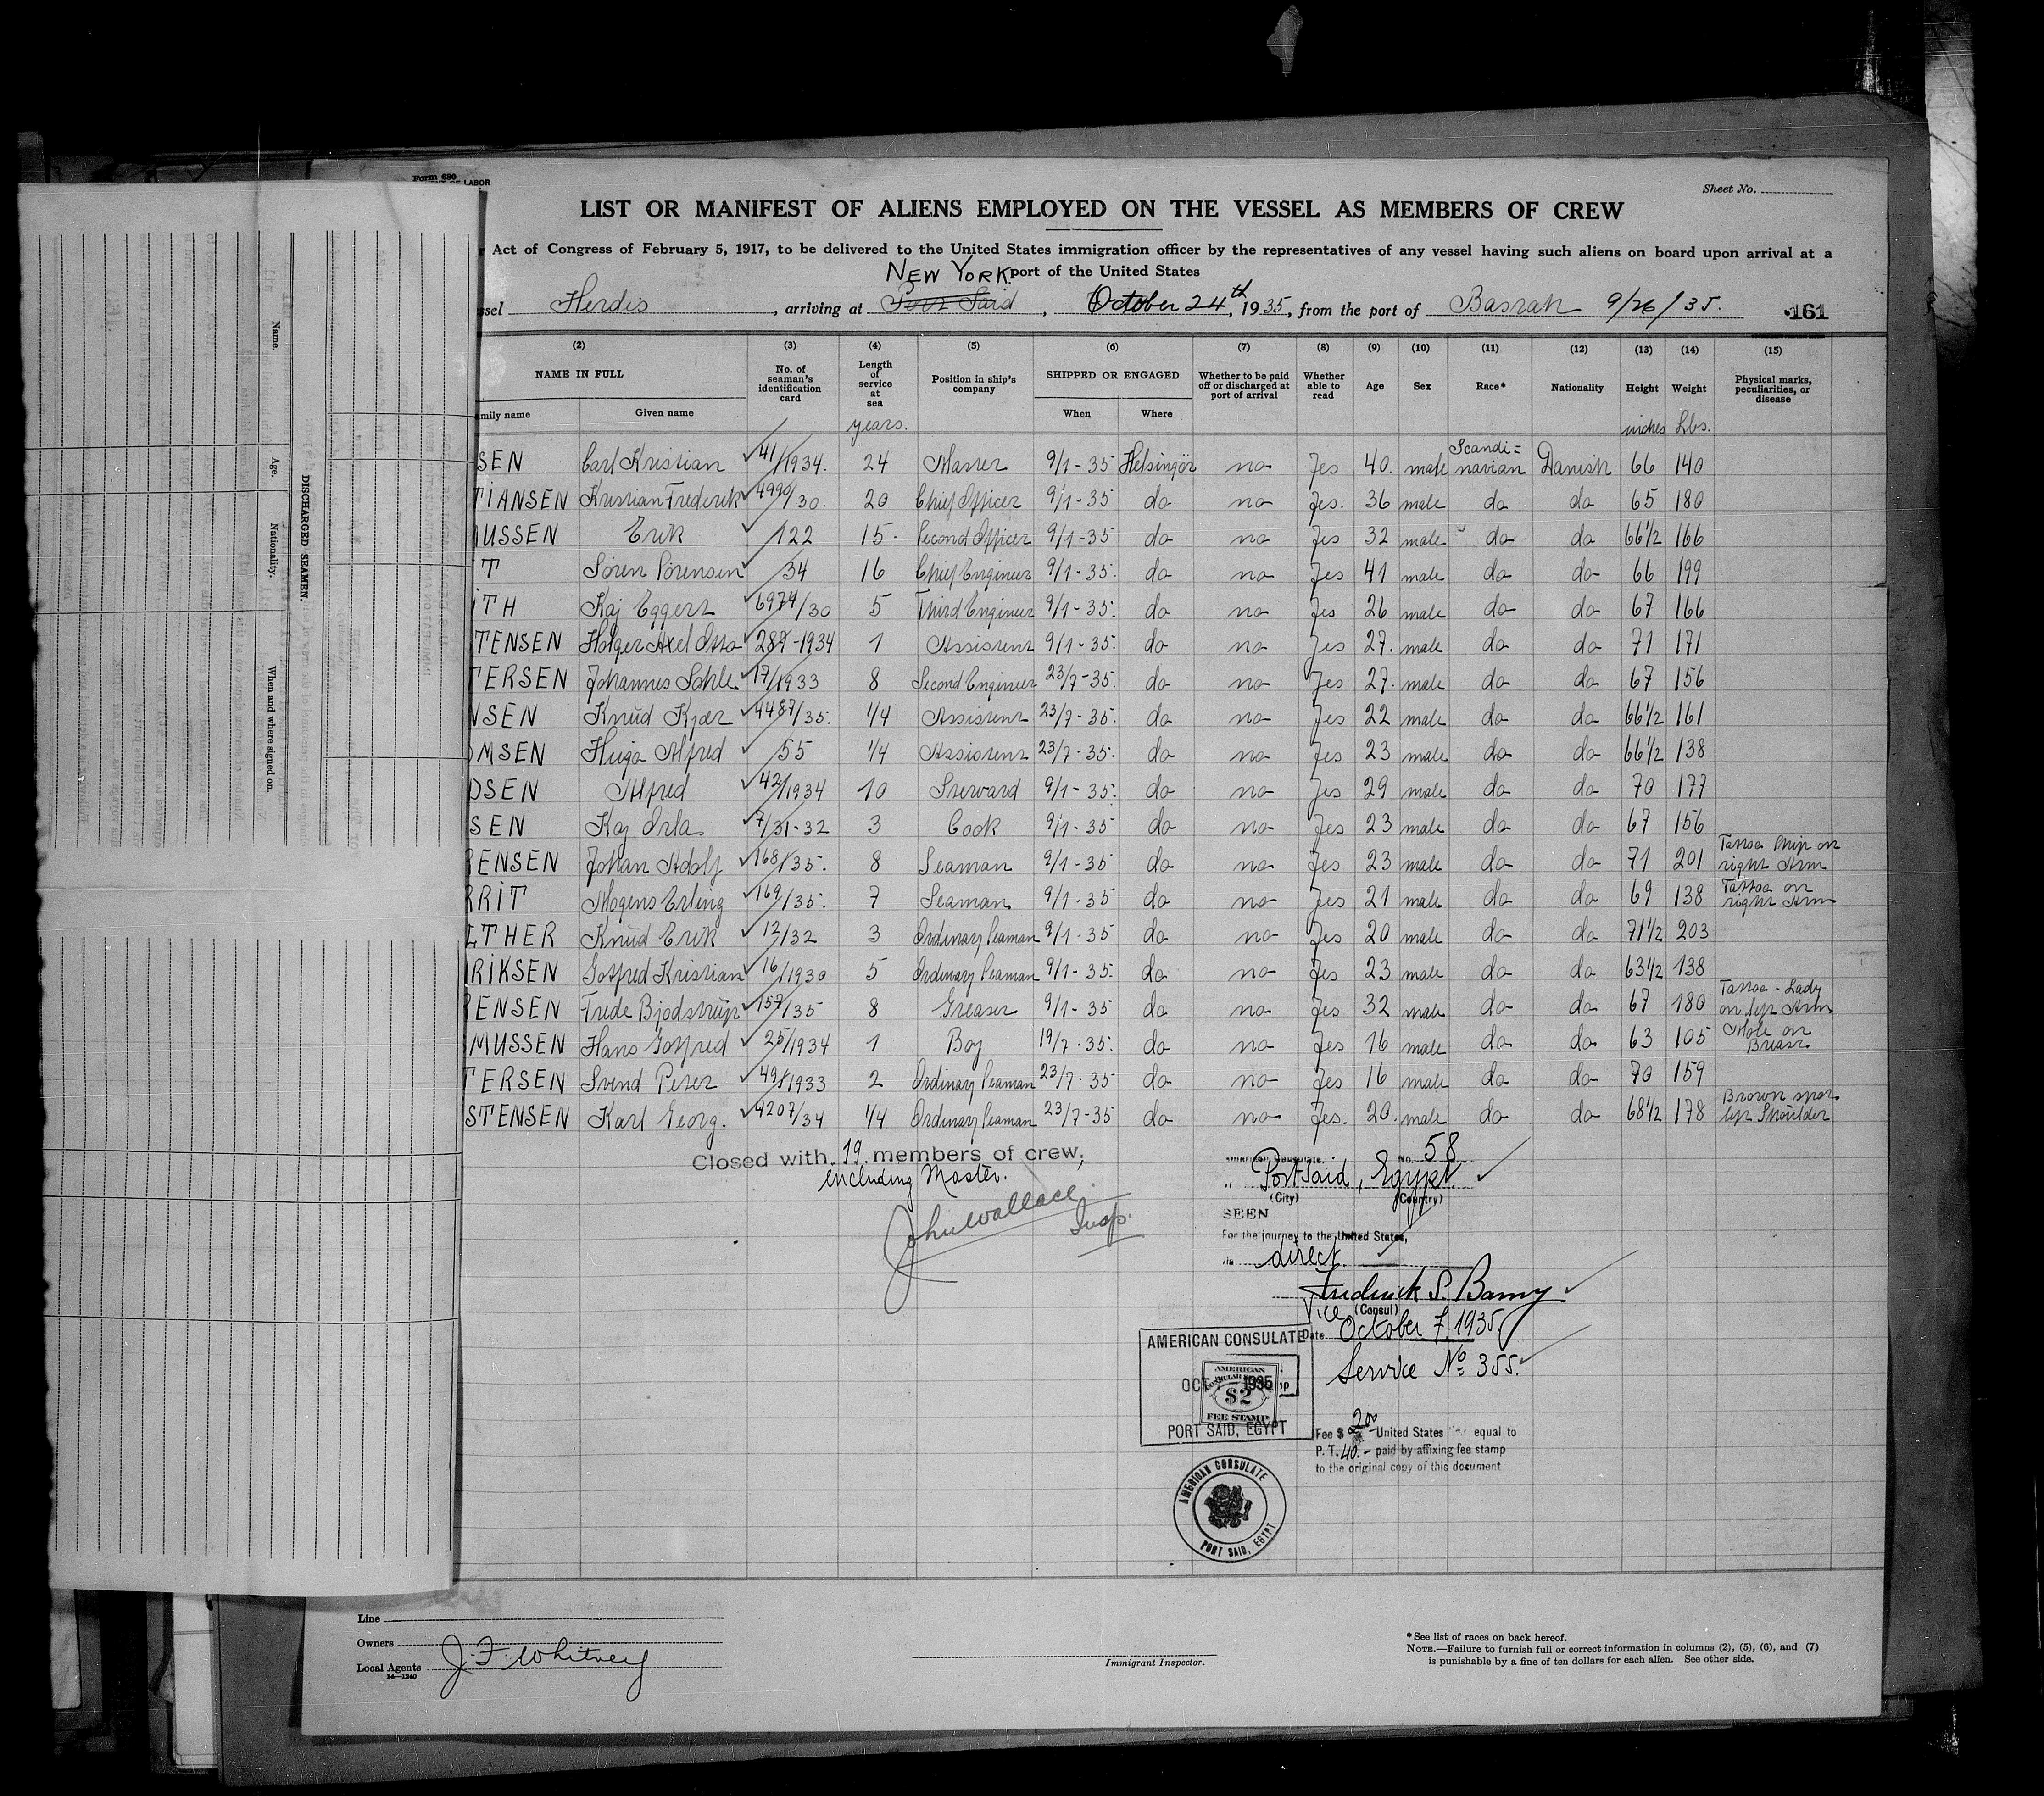 Form 680
OF LABOR
Sheet No.
LIST OR MANIFEST OF ALIENS EMPLOYED ON THE VESSEL AS MEMBERS OF CREW
Act of Congress of February 5, 1917, to be delivered to the United States immigration officer by the representatives of any vessel having such aliens on board upon arrival at a
port of the United States
NEW YORK
ssel Herdis, arriving at Port Said, October 24th, 1935, from the port of Basrah 9/26/35. 161
(2) (3) (4) (5) (6) (7) (8) (9) (10) (11) (12) (13) (14) (15)
NAME IN FULL No. of seaman's identification card Length of service at sea Position in ship's company SHIPPED OR ENGAGED Whether to be paid off or discharged at port of arrival Whether able to read Age Sex Race* Nationality Height Weight Physical marks, peculiarities, or disease
mily name Given name years. When Where inches Lbs.
SEN Carl Kristian 41/1934. 24 Master 9/1-35 Helsingör no Yes 40. male Scandi=navian Danish 66 140
TIANSEN Kristian Frederik 4990/30. 20 Chief Officer 9/1-35 do no Yes. 36 male do do 65 180
USSEN Erik 122 15. Second Officer 9/1-35 do no Yes 32 male do do 66 1/2 166
T Sören Sörensen 34 16 Chief Engineer 9/1-35. do no Yes 41 male do do 66 199
TH Kaj Eggert 6974/30 5 Third Engineer 9/1-35. do no Yes 26 male do do 67 166
TENSEN Holger Axel Otto 287-1934 1 Assistent 9/1-35. do no Yes 27. male do do 71 171
ERSEN Johannes Sohle 17/1933 8 Second Engineer 23/7-35. do no Yes 27. male do do 67 156
NSEN Knud Kjær 4487/35. 1/4 Assistent 23/7-35. do no Yes 22 male do do 66 1/2 161
MSEN Hugo Alfred 55 1/4 Assistent 23/7-35. do no Yes 23 male do do 66 1/2 138
DSEN Alfred 42/1934 10 Steward 9/1-35. do no Yes 29 male do do 70 177
SEN Kaj Orla 7/31-32 3 Cook 9/1-35 do no Yes 23 male do do 67 156
RENSEN Johan Adolf 168/35. 8 Seaman 9/1-35 do no Yes 23 male do do 71 201 Tattoo Ship on right Arm
RRIT Mogens Erling 169/35. 7 Seaman 9/1-35 do no Yes 21 male do do 69 138 Tattoo on right Arm
LTHER Knud Erik 12/32 3 Ordinary Seaman 9/1-35 do no Yes 20 male do do 71 1/2 203
RIKSEN Gotfred Kristian 16/1930 5 Ordinary Seaman 9/1-35. do no Yes 23 male do do 63 1/2 138
ENSEN Frede Bjødstrup 157/35 8 Greaser 9/1-35 do no Yes 32 male do do 67 180 Tattoo - Lady on left Arm
MUSSEN Hans Gotfred 25/1934 1 Boy 19/7-35. do no Yes 16 male do do 63 105 Mole on Breast
TERSEN Svend Peter 491/1933 2 Ordinary Seaman 23/7-35 do no Yes 16 male do do 70 159
STENSEN Karl Georg. 4207/34 1/4 Ordinary Seaman 23/7-35 do no Yes. 20. male do do 68 1/2 178 Brown spot left Shoulder
Closed with 19 members of crew,
including Master.
John Wallace
Insp.
American Consulate, No. 58
Port Said, Egypt.
(City) (Country)
SEEN
For the journey to the United States,
direct
Frederick S. Barny
Vice (Consul)
Date October 7, 1935
Service No 355.
AMERICAN CONSULATE
OCT 1935
AMERICAN CONSULAR $2 FEE STAMP
PORT SAID, EGYPT
Fee $ 2.00 United States equal to
P. T. 40.- paid by affixing fee stamp
to the original copy of this document
AMERICAN CONSULATE
PORT SAID, EGYPT
Line
Owners
Local Agents J. F. Whitney
14-1240
Immigrant Inspector.
*See list of races on back hereof.
NOTE.—Failure to furnish full or correct information in columns (2), (5), (6), and (7)
is punishable by a fine of ten dollars for each alien. See other side.
DISCHARGED SEAMEN.
Name. Age. Nationality. When and where signed on.